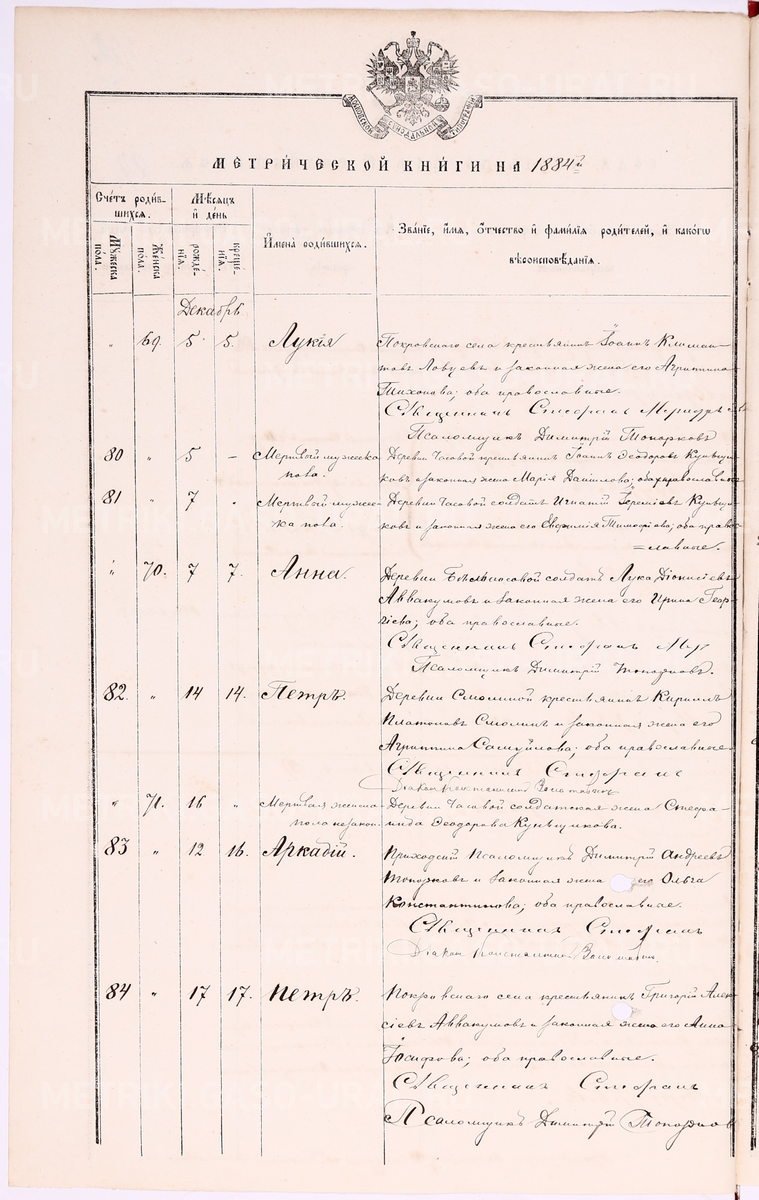 МОСКОВСКОЙ СѴНОДАЛЬНОЙ ТИПОГРАФІИ
МЕТРИ́ЧЕСКОЙ КНИ́ГИ НА 1884й
Счетъ роди́вшихся.
Мѣсяцъ и҆ де́нь
И҆мена̀ родившихся.
Зва́нїе, и҆́мя, ѻ҆́тчество и҆ фами́лїя роди́телей, и҆ како́гѡ вѣроисповѣ́данїя.
Му́жеска по́ла.
Же́нска по́ла.
рожде́нїя.
креще́нїя.
Декабрь
" 69. 5. 5. Лукія Покровскаго села крестьянинъ Іоаннъ Климан-
товъ Ловцевъ и законная жена его Агриппина
Тихонова; оба православные.
Священникъ Стефанъ
Псаломщикъ Димитрій Топорковъ
80 " 5 – Мертвый мужска Деревни Часовой крестьянинъ Іоаннъ Ѳеодоровъ Куньщи-
пола. ковъ и законная жена Марія Данилова; оба православные
81 " 7 " Мертвый муже- Деревни Часовой солдатъ Игнатій Куньщи-
ска пола. ковъ и законная жена его Евфимія Тимофеева; оба право-
=славные.
" 70. 7 7. Анна. Деревни Бѣлоносовой солдатъ Лука Діонисіевъ
Аввакумовъ и законная жена его Ирина Геор-
гіева; оба православные.
Священникъ Стефанъ
Псаломщикъ Димитрій Топорковъ.
82. " 14 14. Петръ. Деревни Смолиной крестьянинъ Кириллъ
Платоновъ Смолинъ и законная жена его
Агриппина Самуйлова; оба православные
Священникъ Стефанъ
Діаконъ Константинъ
" 71. 16 " Мертвая женска Деревни Часовой солдатская жена Стефа-
пола незакон. нида Ѳеодорова Куньщикова.
83 " 12 16. Аркадій. Приходскій Псаломщикъ Димитрій Андреевъ
Топорковъ и законная жена его Ольга
Константинова; оба православные.
Священникъ Стефанъ
Діаконъ Константинъ
84 " 17 17. Петръ. Покровскаго села крестьянинъ Григорій Алек-
сіевъ Аввакумовъ и законная жена его Анна
Іосифова; оба православные.
Священникъ Стефанъ
Псаломщикъ Димитрій Топорков